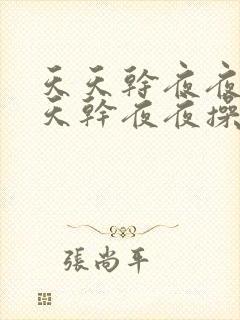 天天幹夜夜
天幹夜夜操
張尚平